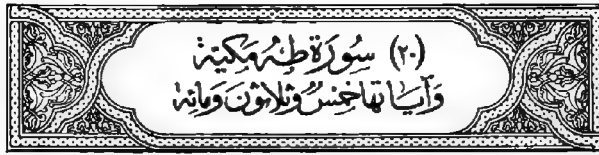 (٢٠) سُورَة طٰهٰ مَكيَّة
وَآيَاتهَا خَمْسٌ وَثلاثونَ وَمائة